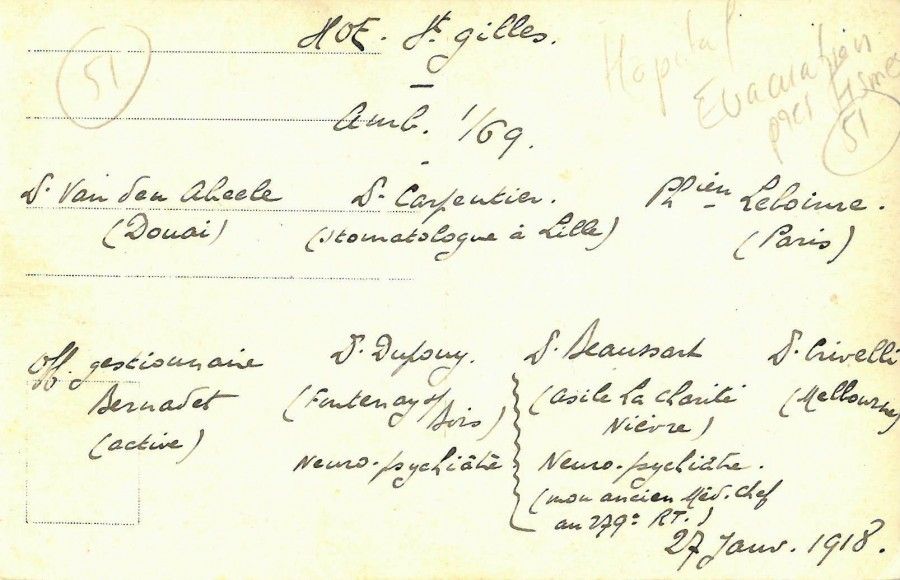 HOE. St gilles.
51
Hopital
Evacuation
pres Fismes
51
Amb. 1/69.
Dr Van den Abeele
(Douai)
Dr Carpentier.
(Stomatologue à Lille)
Phien
(Paris)
Off. gestionnaire
Bernadet
(active)
Dr Dufouy.
(Fontenay s/ Bois)
Neuro-psychiâtre
Dr Beaussart
(asile La Charité
Nièvre)
Neuro-psychiâtre.
(mon ancien Méd. chef
au 279e RT.)
Dr Crivelli
(Melbourne)
27 Janv. 1918.